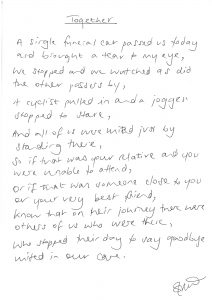 Together
A single funeral car passed us today
and brought a tear to my eye,
We stopped and we watched as did
the other passers by,
A cyclist pulled in and a jogger
stopped to stare,
And all of us were united just by
standing there,
So if that was your relative and you
were unable to attend,
Or if that was someone close to you
or your very best friend,
Know that on their journey there were
others of us who were there,
Who stopped their day to say goodbye
united in our care.